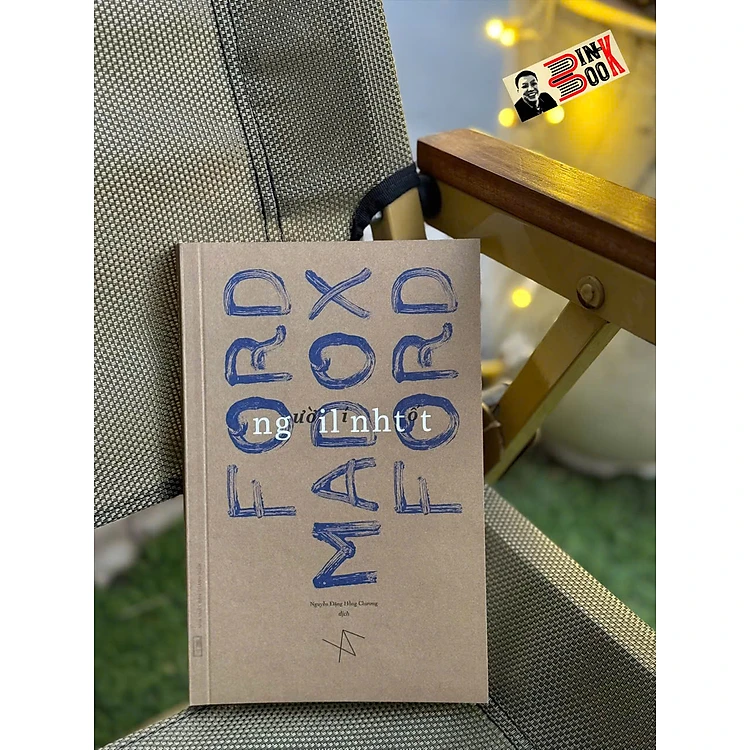 BINH
BOOK
FORD
MADOX
FORD
người lính tốt
Nguyễn Đặng Hồng Chương
dịch